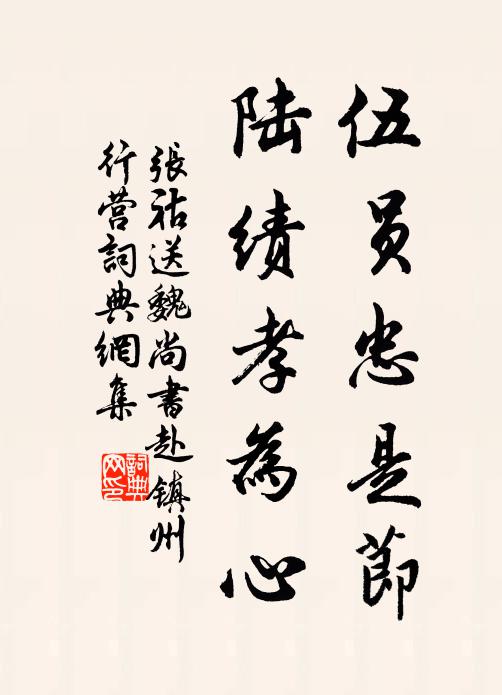 伍员忠是節
陆绩孝為心
張祜送魏尚書赴镇州
行营詞典網集
詞典网印